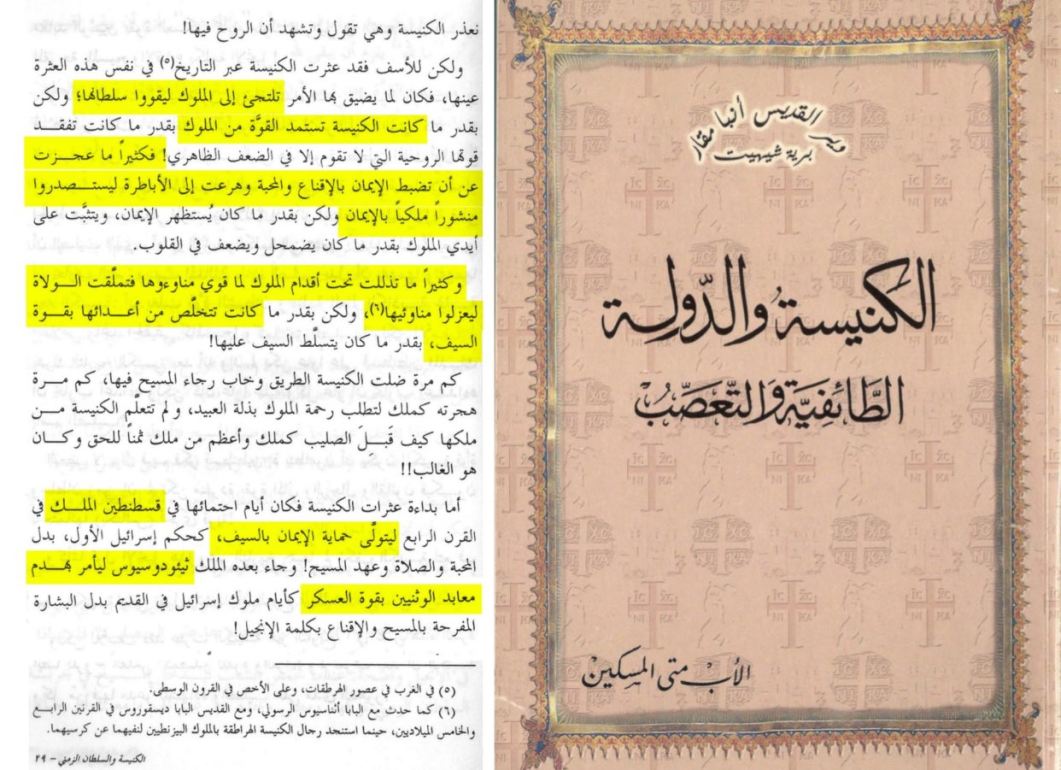 نعذر الكنيسة وهي تقول وتشهد أن الروح فيها!
ولكن للأسف فقد عثرت الكنيسة عبر التاريخ(٥) في نفس هذه العثرة
عينها، فكان لما يضيق بها الأمر تلتجئ إلى الملوك ليقووا سلطانها؛ ولكن
بقدر ما كانت الكنيسة تستمد القوَّة من الملوك بقدر ما كانت تفقد
قوتها الروحية التي لا تقوم إلا في الضعف الظاهري! فكثيراً ما عجزت
عن أن تضبط الإيمان بالإقناع والمحبة وهرعت إلى الأباطرة ليستصدروا
منشوراً ملكياً بالإيمان ولكن بقدر ما كان يُستظهر الإيمان، ويتثبَّت على
أيدي الملوك بقدر ما كان يضمحل ويضعف في القلوب.
وكثيراً ما تذللت تحت أقدام الملوك لما قوي مناوءوها فتملَّقت الولاة
ليعزلوا مناوئيها(٦)، ولكن بقدر ما كانت تتخلَّص من أعدائها بقوة
السيف، بقدر ما كان يتسلَّط السيف عليها!
كم مرة ضلت الكنيسة الطريق وخاب رجاء المسيح فيها، كم مرة
هجرته كملك لتطلب رحمة الملوك بذلة العبيد، ولم تتعلَّم الكنيسة من
ملكها كيف قَبِلَ الصليب كملك وأعظم من ملك ثمناً للحق وكان
هو الغالب!!
أما بداءة عثرات الكنيسة فكان أيام احتمائها في قسطنطين الملك في
القرن الرابع ليتولَّى حماية الإيمان بالسيف، كحكم إسرائيل الأول، بدل
المحبة والصلاة وعهد المسيح! وجاء بعده الملك ثيئودوسيوس ليأمر بهدم
معابد الوثنيين بقوة العسكر كأيام ملوك إسرائيل في القديم بدل البشارة
المفرحة بالمسيح والإقناع بكلمة الإنجيل!
(٥) في الغرب في عصور الهرطقات، وعلى الأخص في القرون الوسطى.
(٦) كما حدث مع البابا أثناسيوس الرسولي، ومع القديس البابا ديسقوروس في القرنين الرابع
والخامس الميلاديين، حينما استنجد رجال الكنيسة الهراطقة بالملوك البيزنطيين لنفيهما عن كرسيهما.
الكنيسة والسلطان الزمني – ٢٩
دير القديس أنبا مقار
برية شيهيت
الكنيسة والدّولة
الطَّائفيَّة والتَّعصّب
الأب متى المسكين